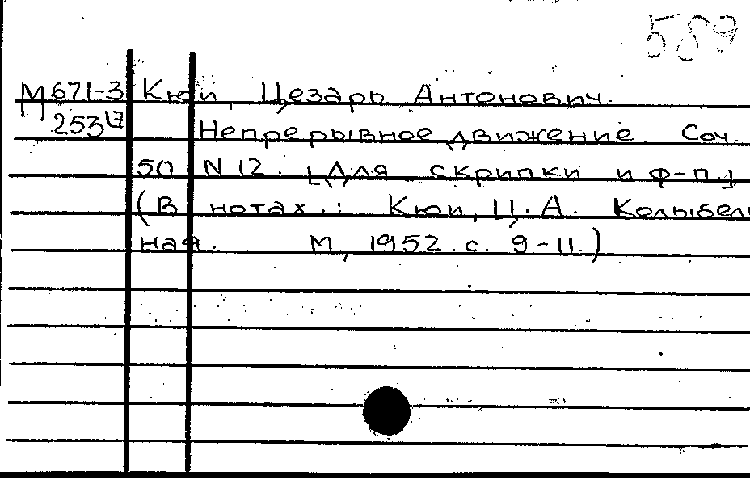 589
М 671-3 Кюи, Цезарь Антонович.
253 Непрерывное движение. Соч.
50 N 12. [Для скрипки и ф-п.]
(В нотах.: Кюи, Ц. А. Колыбель
ная. М, 1952. с. 9-11.)